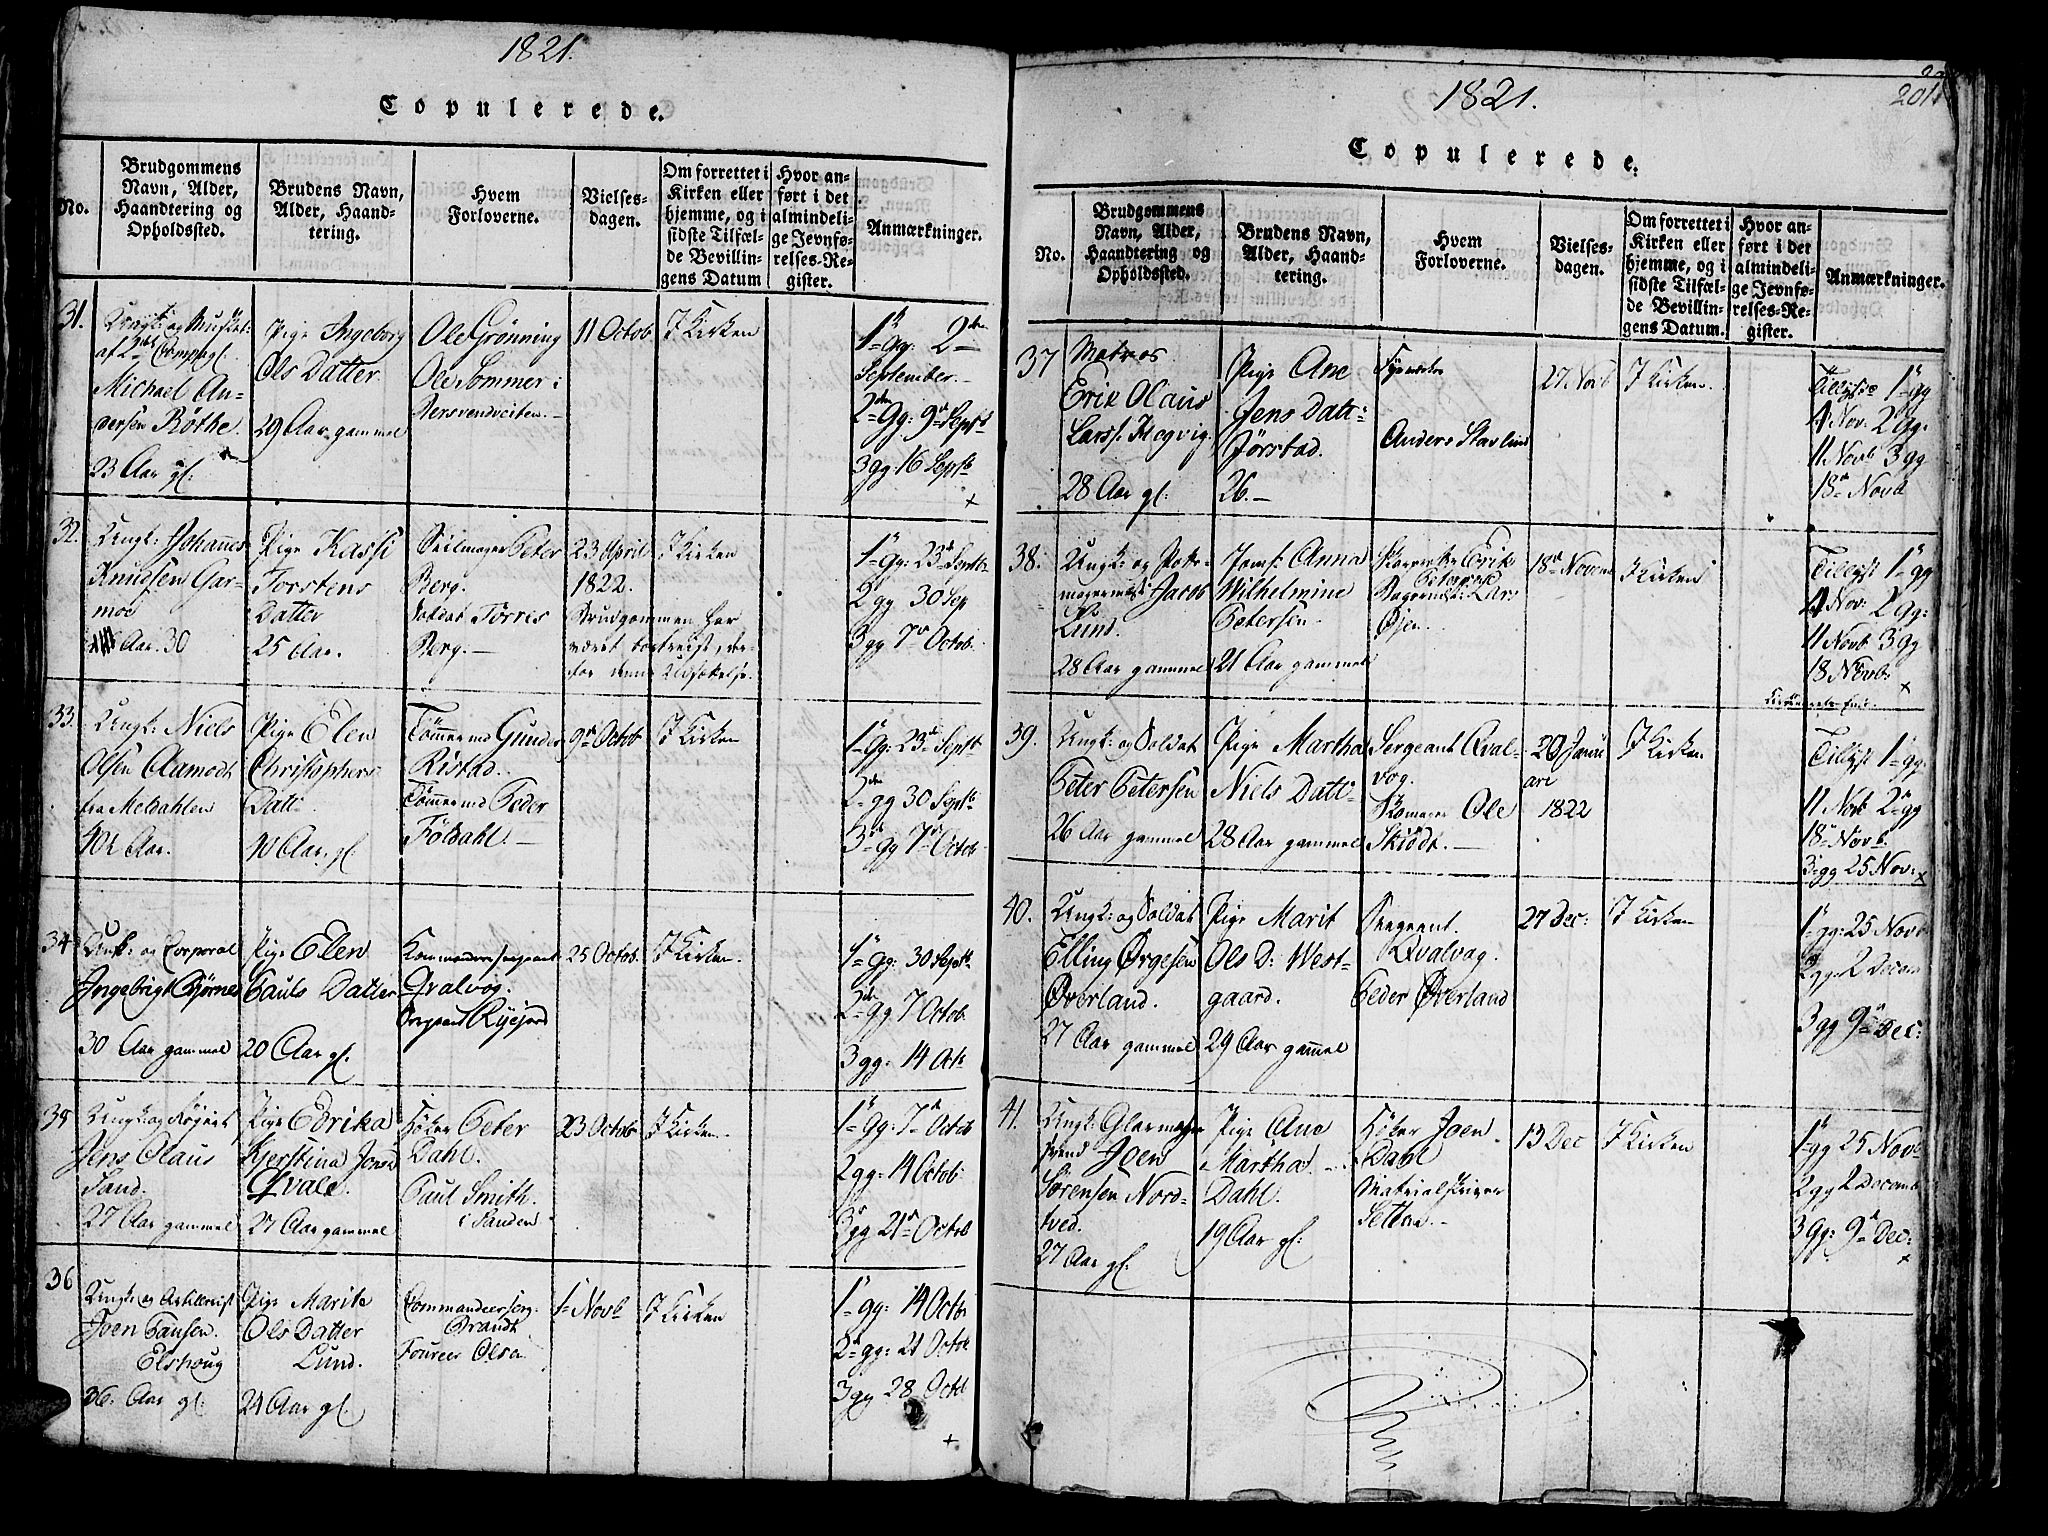 1821.
Copulerede.
No.
Brudgommens
Navn, Alder,
Haandtering og
Opholdssted.
Brudens Navn,
Alder, Haand-
tering.
Hvem
Forloverne.
Vielses-
dagen.
Om forrettet i
Kirken eller
hjemme, og i
sidste Tilfæl-
de Bevillin-
gens Datum
Hvor an-
ført i det
almindeli-
ge Jevnfø-
relses-Re-
gister.
Anmærkninger.
31.
Ungk: og
af 2det Compagl.
Michael An-
dersen Röthe.
23 Aar gl.
Pige Ingeborg
Ols Datter.
29 Aar gammel
Ole Grönning
Ole Sommer i
11 Octob
I Kirken
1ste Gg: 2den
September.
2den Gg: 9de Septb
3 gg 16 Septb
32.
Ungk: Johannes
Knudsen Gar-
moe
Aar. 30
Pige Kassi
Torstens
Datter
25 Aar.
Seilmager Peter
Berg.
Soldat Torres
Berg.
23 April
1822.
Brudgommen har
været bortreist, der-
for denne Udsættelse.
I Kirken
1ste Gg: 23de Septb
2 gg 30 Sep
3 gg 7de Octob.
33.
Ungk: Niels
Olsen Aamodt
fra Meldahlen
40½ Aar.
Pige Elen
Christophers
Datt.
40 Aar. gl.
Tömmermd Gunder
Ristad.
Tömmermd Peder
Földahl.
9de Octob
I Kirken
1ste Gg: 23de Septb
2den gg 30 Septb
3de gg 7de Octob
34
Ungk: og Corporal
Ingebrigt Bjørnes
30 Aar gammel
Pige Elen
Pauls Datter
20 Aar gl.
Kommandeersergeant
Qvalvog.
Sergeant Ryejord
25 Octob.
I Kirken.
1ste Gg: 30 Septb
2den gg 7 Octob.
3 gg: 14 Octb
35
Jens Olaus
Sand.
27 Aar gammel
Pige Edrika
Kjerstina Jonsd
Qvale.
27 Aar gammel
Höker Peter
Dahl.
Paul Smith.
i Sanden
23 Octob
I Kirken
1ste Gg: 7de Octob
2 gg: 14 Octob.
3 gg 21de Octob
36
Ungk: og Artillerist
Joen Hansen.
Elshoug
36. Aar gl.
Pige Marite
Ols Datter
Lund.
24 Aar gl.
Commandeerserg.
Brandt
Foureer Olsen
1ste Novb
I Kirken
1ste gg: 14 Octob.
2den gg: 21 Octob
3 gg 28 Octb
1821.
201
Copulerede.
No.
Brudgommens
Navn, Alder,
Haandtering og
Opholdssted.
Brudens Navn,
Alder, Haand-
tering.
Hvem
Forloverne.
Vielses-
dagen.
Om forrettet i
Kirken eller
hjemme, og i
sidste Tilfæl-
de Bevillin-
gens Datum.
Hvor an-
ført i det
almindeli-
ge Jevnfø-
relses-Re-
gister.
Anmærkninger.
37
Matros
Erik Olaus
Larss. Hogvig.
28 Aar gl:
Pige Ane
Jens Datt:
Jörstad.
26.
Anders
27 Novb
I Kirken.
Tillyst 1ste gg
4 Nov: 2 Gg:
11 Novb 3 gg
18de Novb
38.
Jacob
Lund.
28 Aar gammel
Jomf: Anna
Wilhelmine
Petersen
21 Aar gammel
Erik
Petersen
Lars
Øjen.
18de Novemb
I Kirken
Tillyst 1ste gg
4 Nov: 2 Gg:
11 Novb 3 gg
18 Novb.
39.
Ungk: og Soldat
Peter Petersen
26 Aar gammel
Pige Martha
Niels Datt
28 Aar gammel
Sergeant Qval-
vog.
Skomager Ole
Skiödt.
20 Janu
ari
1822
I Kirken
Tillyst 1ste gg
11 Novb 2den gg
18de Novb.
3de gg 25 Nov:
40.
Ungk: og Soldat
Elling Ørgesen
Øverland.
27 Aar gammel
Pige Marit
Ols D: West-
gaard.
29 Aar gammel
Sergeant.
Qvalvog.
Peder Øverland
27 Dec:
I Kirken
1ste gg: 25 Novb
2 gg: 2 Decem
3 gg 9de Dec:
41.
Ungk: Glarmager
svend Joen
Sörensen Nord-
tved.
27 Aar gl.
Pige Ane
Martha
Dahl.
19 Aar gl:
Höker Joen
Dahl
Materialskriver
Setten.
13 Dec
I Kirken
1ste gg 25 Novb
2 gg 2 Decemb
3 Gg: 9de Dec: